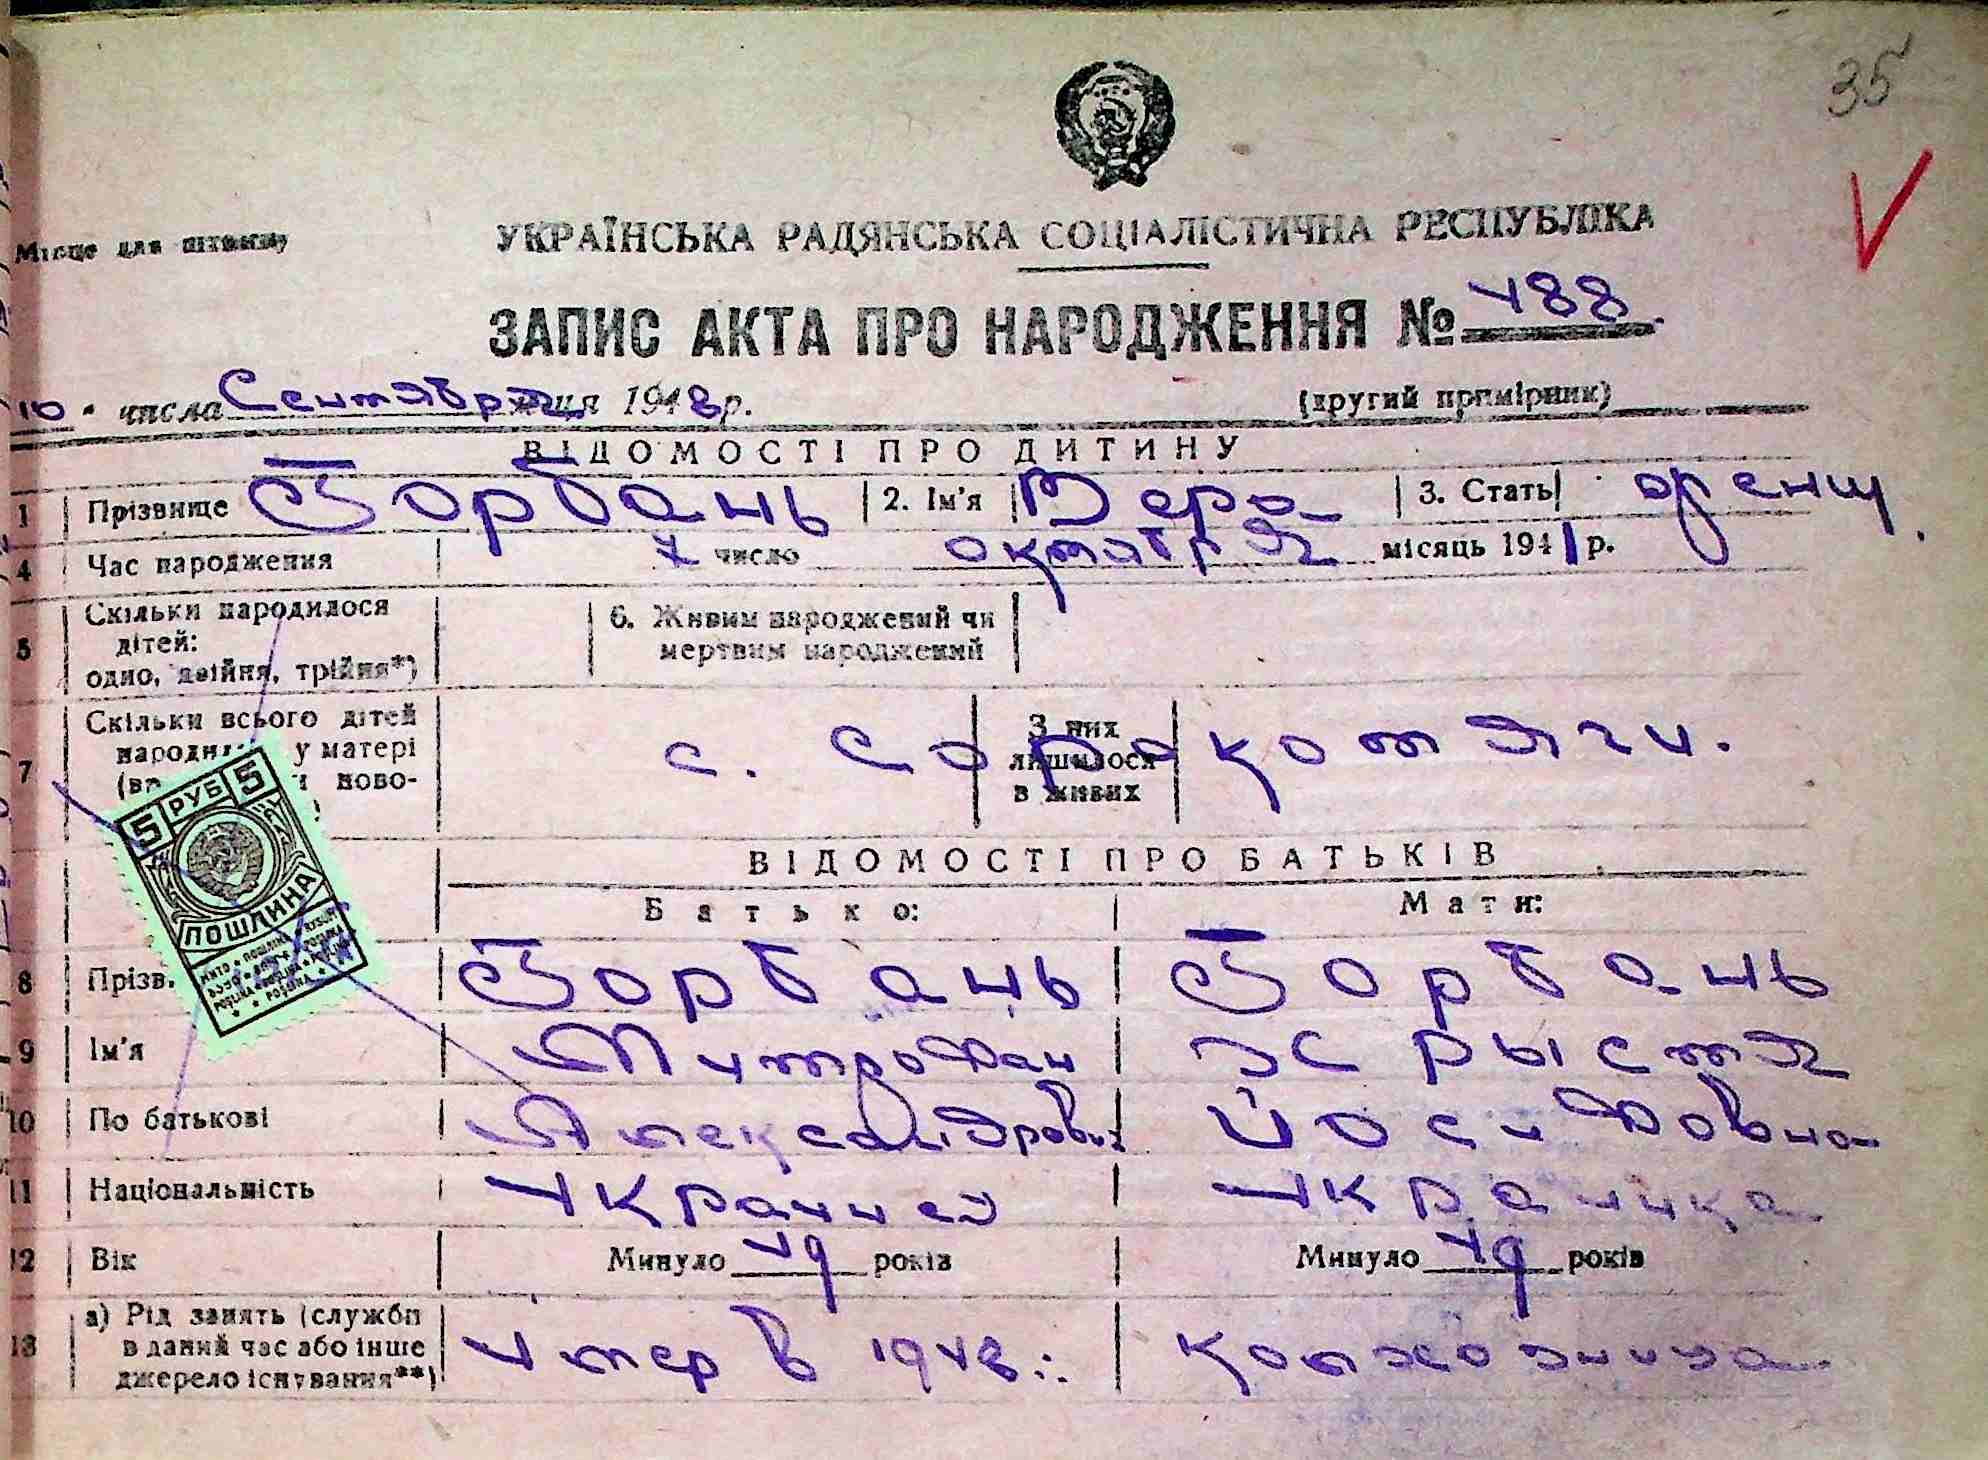 35
Місце для штампу
УКРАЇНСЬКА РАДЯНСЬКА СОЦІАЛІСТИЧНА РЕСПУБЛІКА
ЗАПИС АКТА ПРО НАРОДЖЕННЯ № 488
10 числа Сентября місяця 1948 р. (другий примірник)
ВІДОМОСТІ ПРО ДИТИНУ
1 Прізвище Горбань 2. Ім'я Вера 3. Стать женщ.
4 Час народження 7 число октября місяць 1941 р.
5 Скільки народилося дітей: одно, двійня, трійня*) 6. Живим народжений чи мертвим народжений
7 Скільки всього дітей у матері ново- с. Сорокотяги. З них лишилося в живих
5 РУБ 5
ПОШЛИНА
ВІДОМОСТІ ПРО БАТЬКІВ
Батько: Мати:
8 Прізв. Горбань Горбань
9 Ім'я Митрофан Хрыстя
10 По батькові Александрович Йосифовна
11 Національність Украинец Украинка
12 Вік Минуло 49 років Минуло 49 років
13 а) Рід занять (служби в даний час або інше джерело існування**) Умер в 1948 колхозница